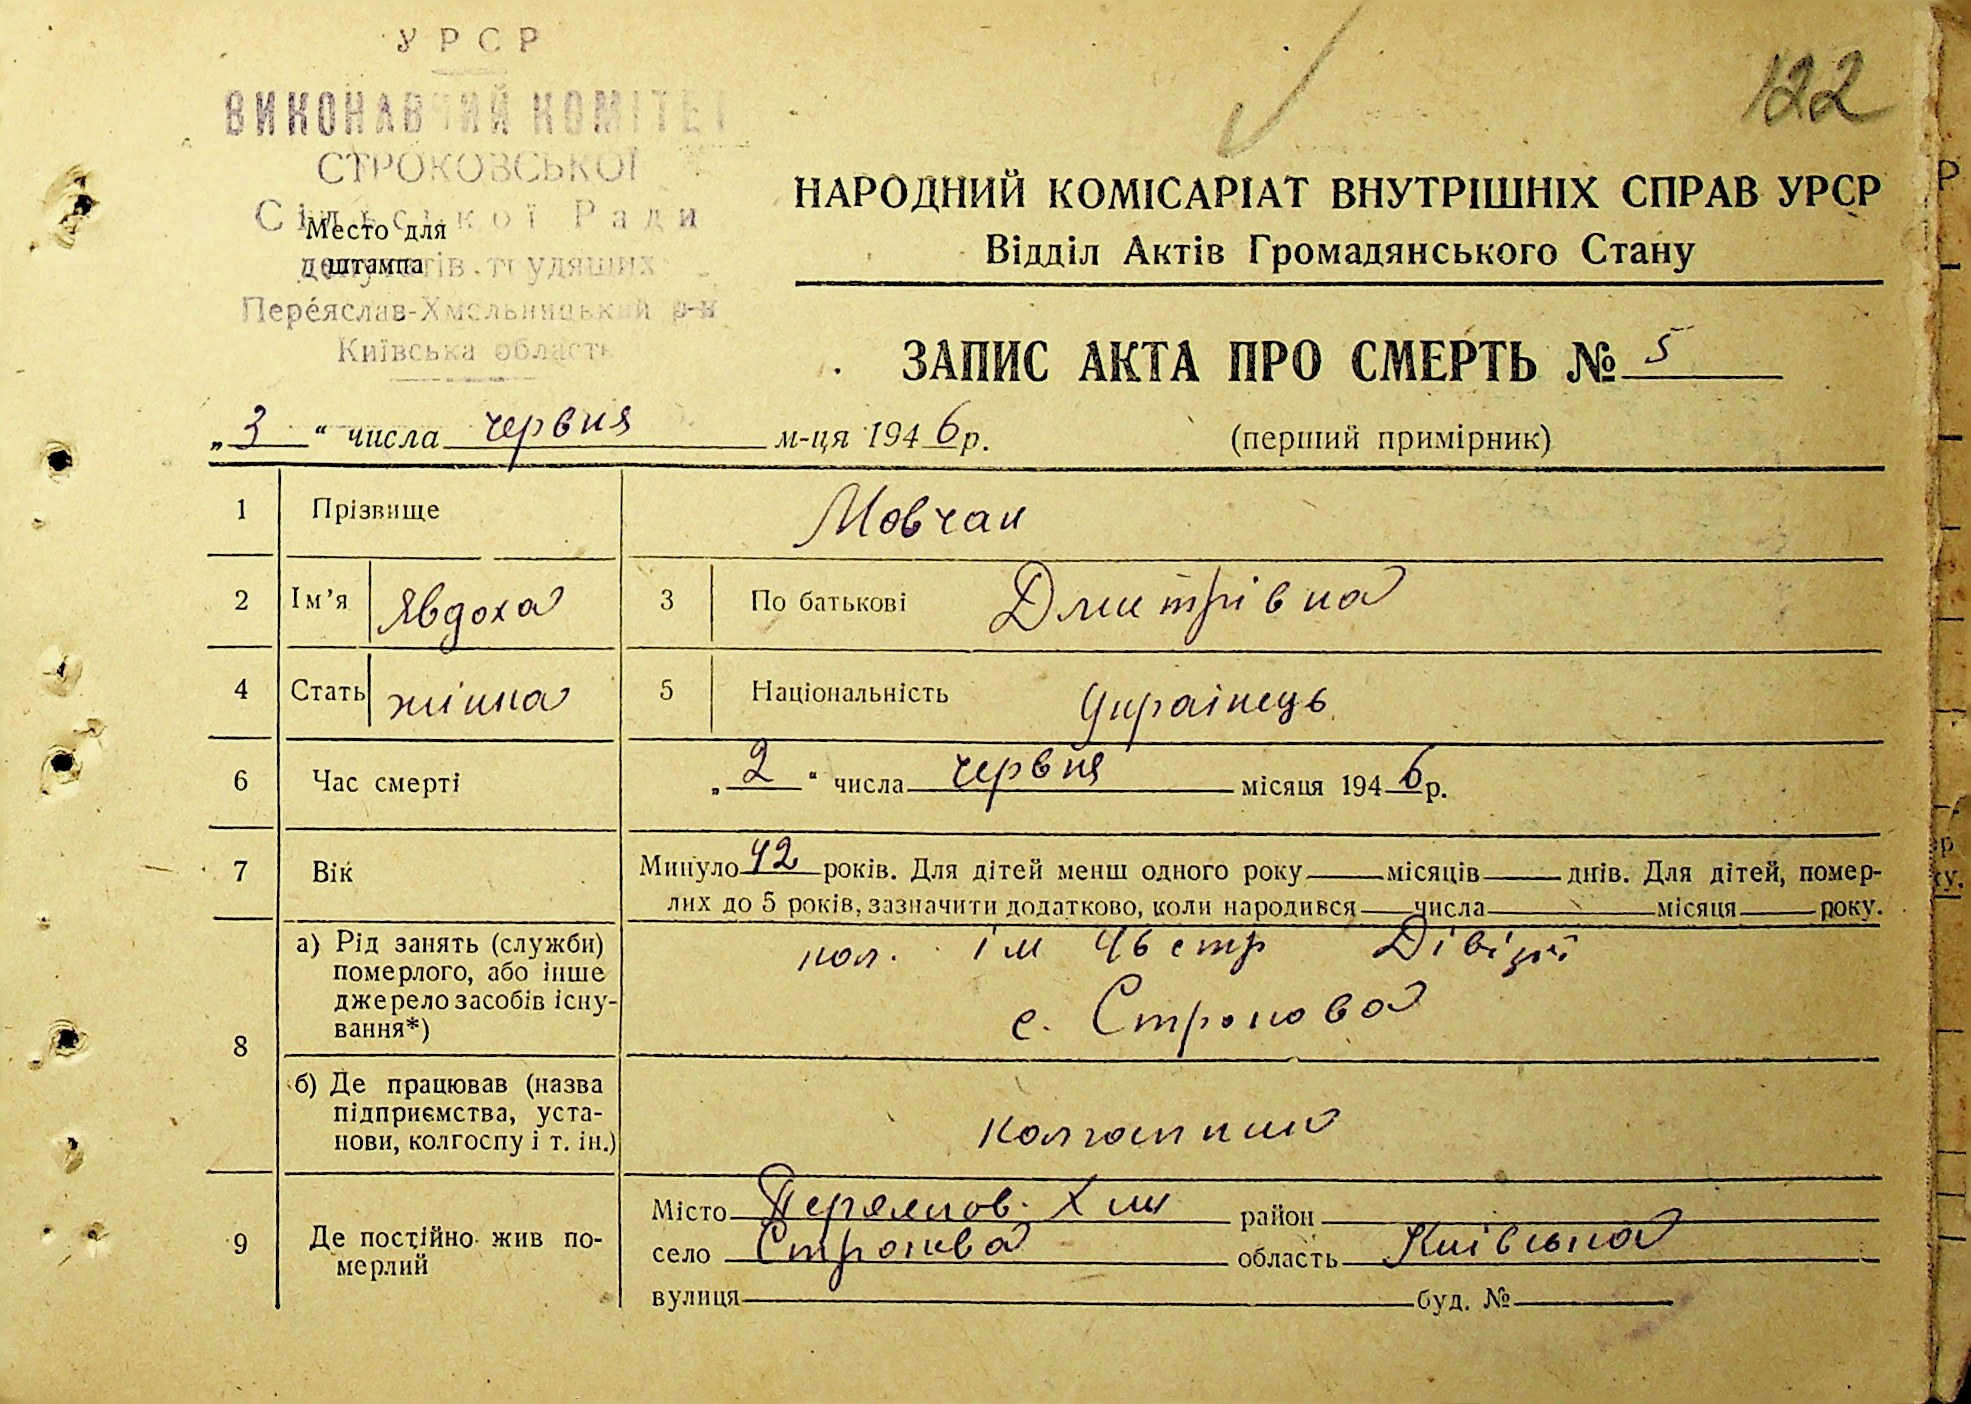 УРСР
ВИКОНАВЧИЙ КОМІТЕТ
СТРОКОВСЬКОЇ
Сільської Ради
депутатів трудящих
Переяслав-Хмельницький р-н
Київська область
Место для
штампа
122
НАРОДНИЙ КОМІСАРІАТ ВНУТРІШНІХ СПРАВ УРСР
Відділ Актів Громадянського Стану
ЗАПИС АКТА ПРО СМЕРТЬ № 5
„3“ числа червня м-ця 1946р. (перший примірник)
1 Прізвище Мовчан
2 Ім’я Явдоха 3 По батькові Дмитрівна
4 Стать жінка 5 Національність Українець
6 Час смерті „2“ числа червня місяця 1946р.
7 Вік Минуло 42 років. Для дітей менш одного року місяців днів. Для дітей, помер-
лих до 5 років, зазначити додатково, коли народився числа місяця року.
8 а) Рід занять (служби)
померлого, або інше
джерело засобів існу-
вання*)
кол. ім 46 стр Дівізії
с. Строкова
б) Де працював (назва
підприємства, уста-
нови, колгоспу і т. ін.)
9 Де постійно жив по-
мерлий
Місто Хм район
село Строкова область Київська
вулиця буд. №